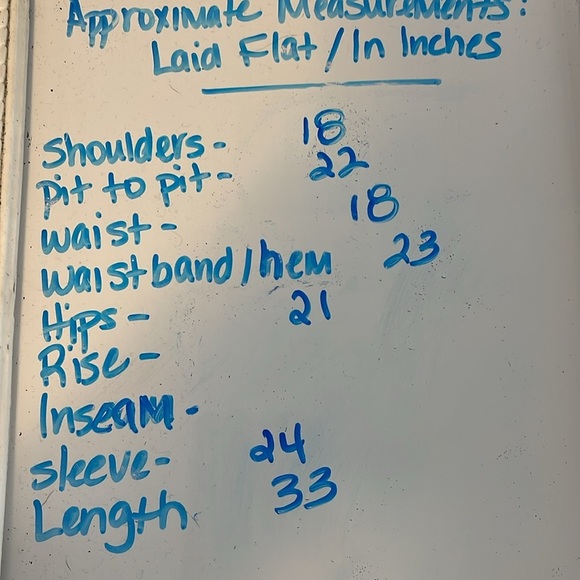 Approximate Measurements:
Laid Flat / In Inches
Shoulders- 18
pit to pit- 22
waist- 18
waistband/hem 23
Hips- 21
Rise-
Inseam-
sleeve- 24
Length 33